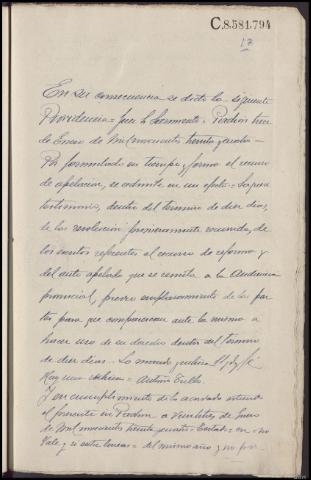 C.8.581.794
17
En su consecuencia se dictó la siguiente
Providencia = Juez Sr. Sarmiento = Verdín trece
de Enero de Mil novecientos treinta y cuatro =
Por formulado en tiempo y forma el recurso
de apelación, se admite en un efecto =
testimonio, dentro del termino de diez dias,
de la resolución primeramente recurrida, de
los escritos referentes al recurso de reforma y
del auto apelado que se remita a la Audiencia
provincial, previo emplazamiento de las par
tes para que comparezcan ante la misma a
hacer uso de su derecho dentro del termino
de diez dias = Lo mandó y rubrica S. Sª doy fé
= Antonio
Y en cumplimiento de lo acordado extiendo
el presente en a veintitres de Enero
de Mil novecientos treinta y cuatro = = no
Vale y si entre lineas = del mismo año y no por